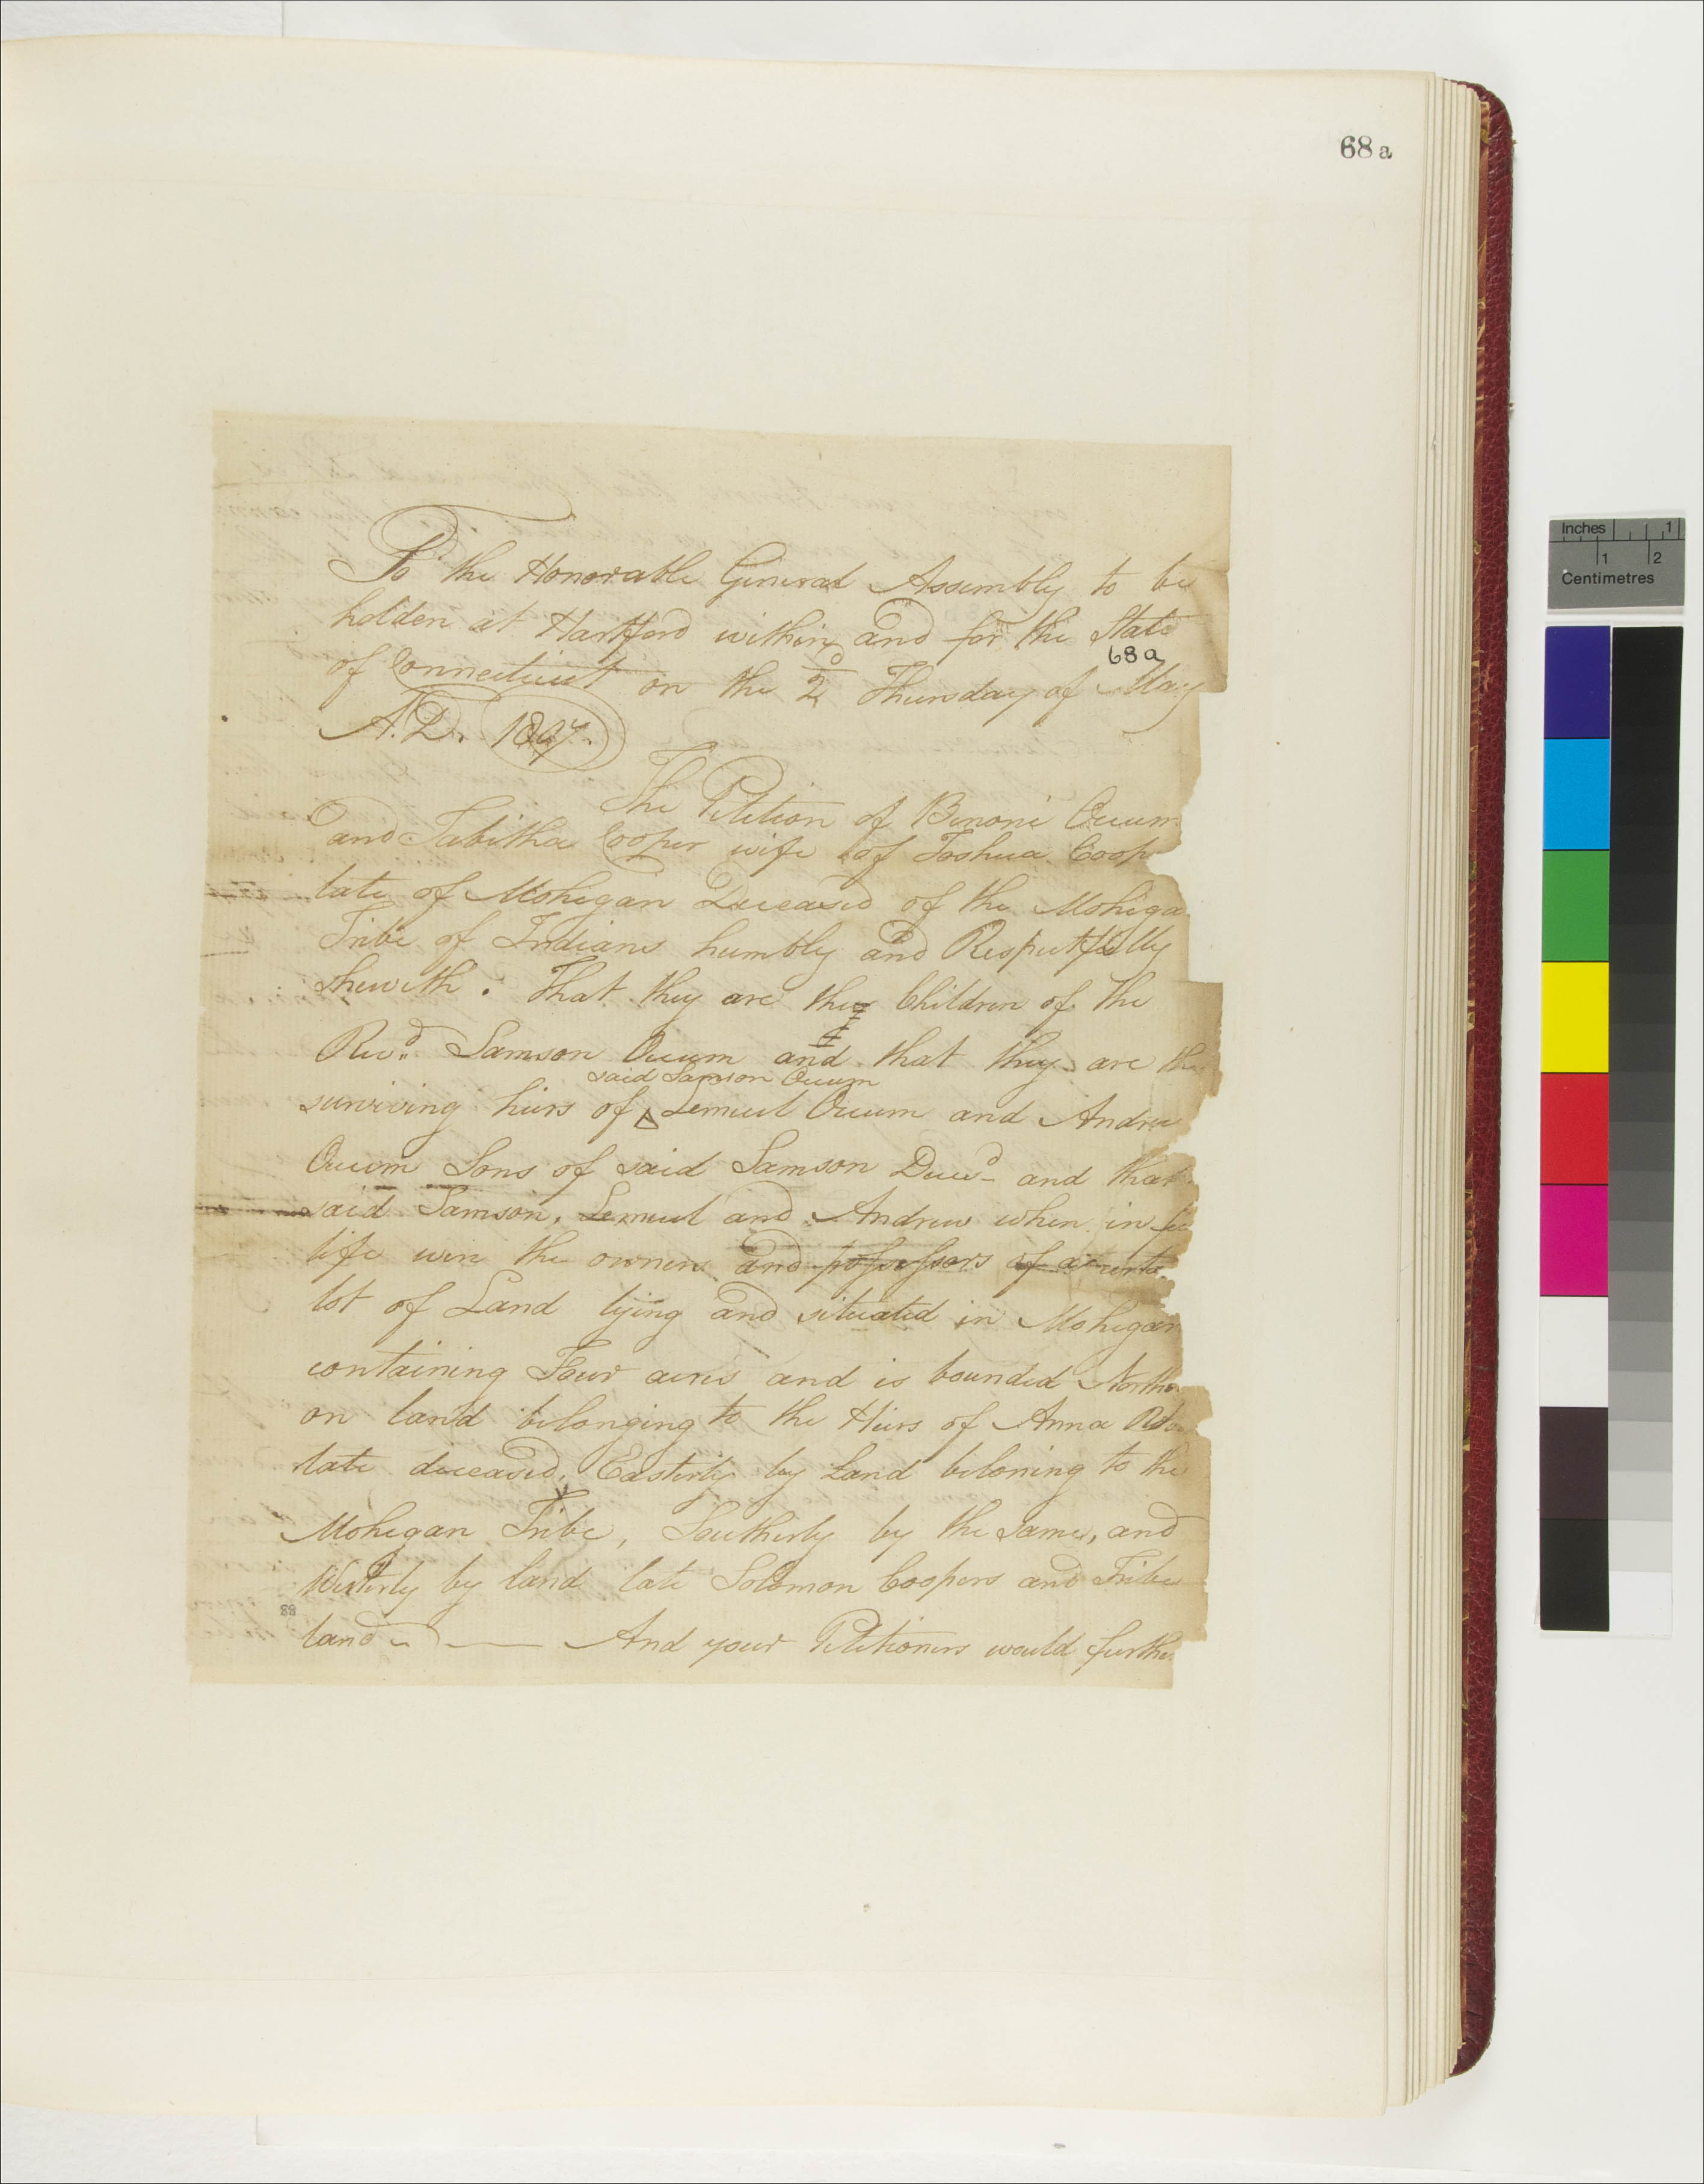 68a
To the Honorable General Assembly to be
holden at Hartford within and for the State
68a
of Connecticut on the 2d Thursday of May
A.D. 1807.
The Petition of Benoni Occum
and Tabitha Cooper wife of Joshua Coop
late of Mohegan Deceased of the Mohega
Tribe of Indians humbly and Respectfully
sheweth. That they are the Children of the
Revd. Samson Occum and that they are the
said Samson Occum
surviving heirs of Lemuel Occum and Andrew
Occum Sons of said Samson Decd- and that
said Samson, Lemuel and Andrew when in
life were the owners and possessors of a certa
lot of Land lying and situated in Mohegan
containing Four acres and is bounded North
on land belonging to the Heirs of Anna
late deceased, Easterly by Land beloning to the
Mohegan Tribe, Southerly by the same, and
Westerly by land late Solomon Coopers and Tribe
land — And your Petitioners would further
Inches 1
1 2
Centimetres